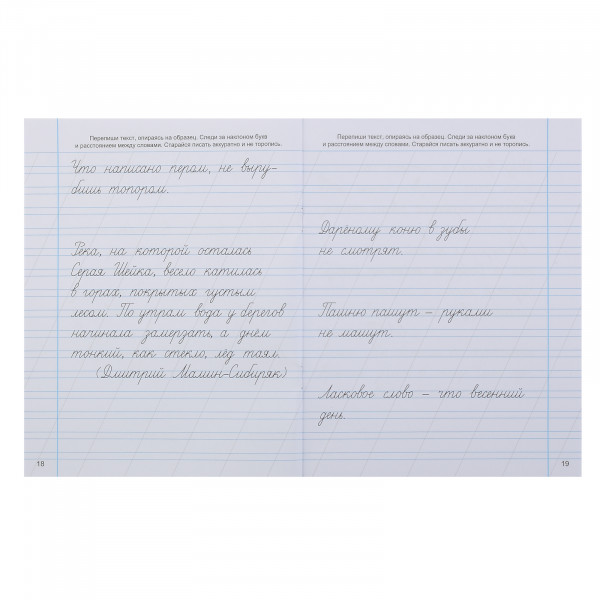 Перепиши текст, опираясь на образец. Следи за наклоном букв
и расстоянием между словами. Старайся писать аккуратно и не торопясь.
Что написано пером, не выру-
бишь топором.
Река, на которой осталась
Серая Шейка, весело катилась
в горах, покрытых густым
лесом. По утрам вода у берегов
начинала замерзать, а днём
тонкий, как стекло, лёд таял.
(Дмитрий Мамин-Сибиряк)
18
Перепиши текст, опираясь на образец. Следи за наклоном букв
и расстоянием между словами. Старайся писать аккуратно и не торопясь.
Дарёному коню в зубы
не смотрят.
Пашню пашут – руками
не машут.
Ласковое слово – что весенний
день.
19